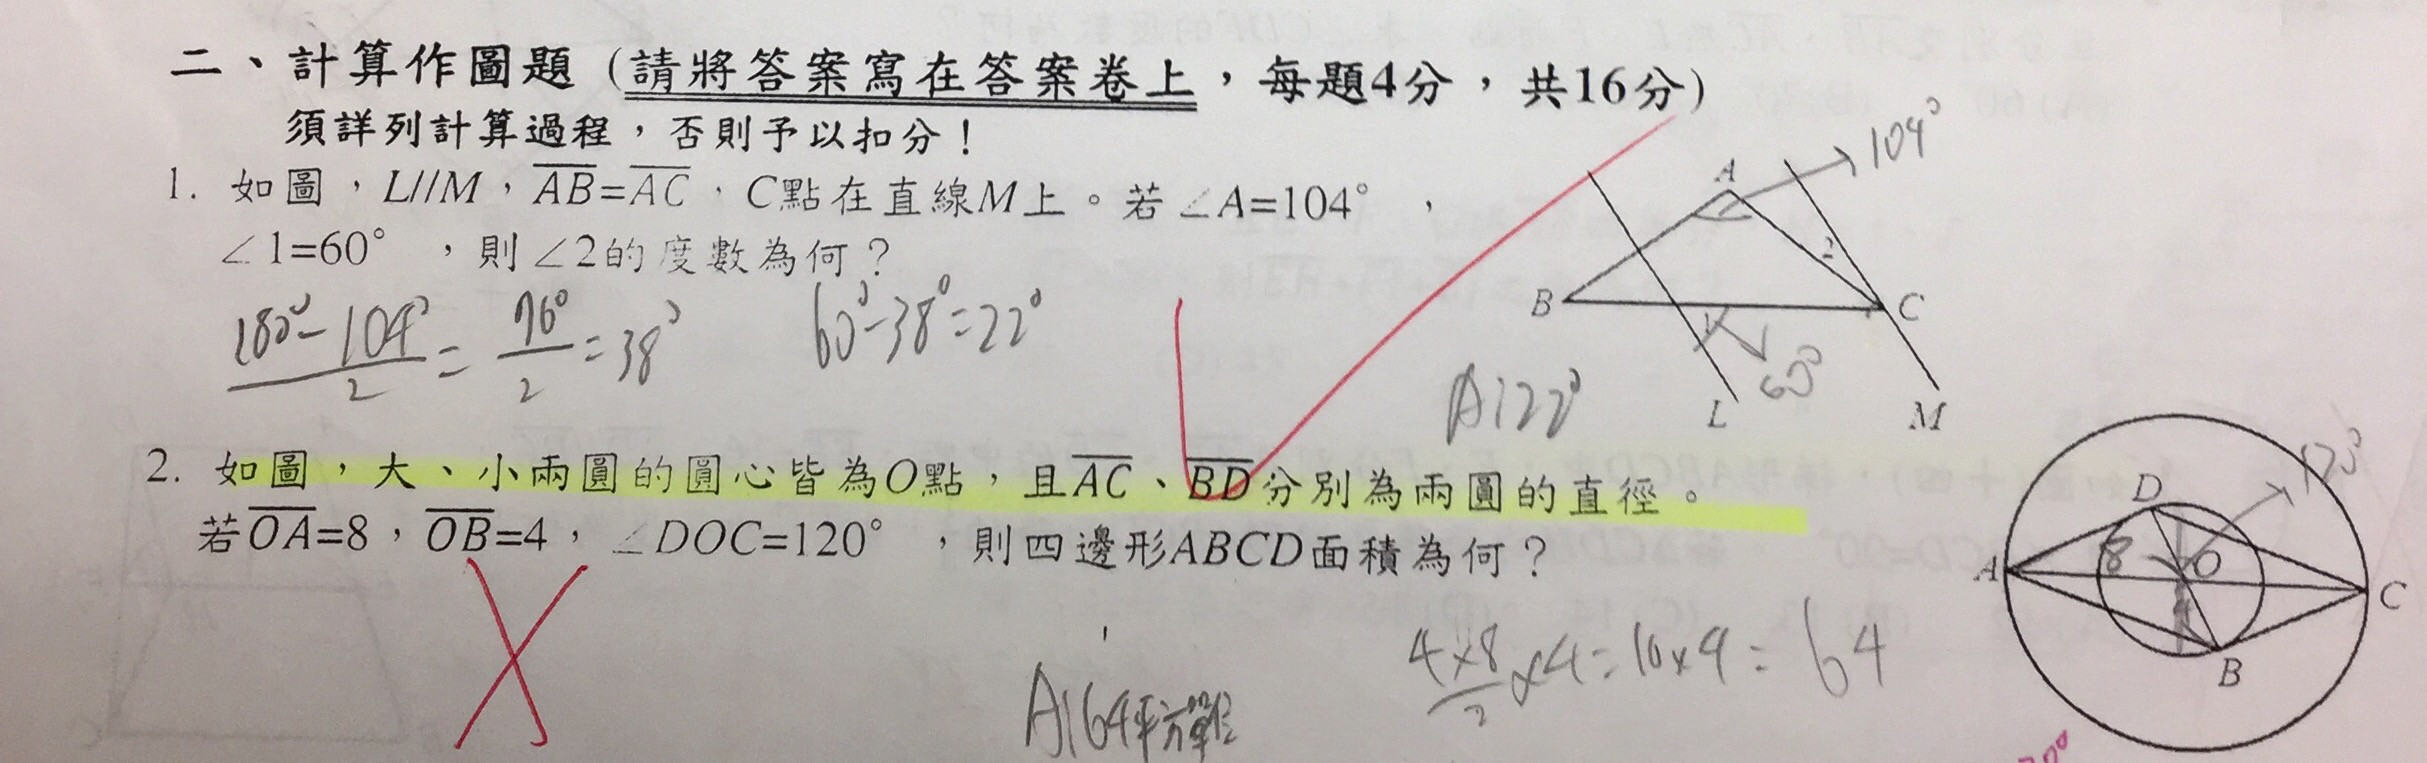 二、計算作圖題（請將答案寫在答案卷上，每題4分，共16分）
須詳列計算過程，否則予以扣分！
1. 如圖，L//M，AB=AC，C點在直線M上。若∠A=104°，
∠1=60°，則∠2的度數為何？
180°-104°/2 = 76°/2 = 38°
60°-38°=22°
A:22°
A
104°
2
B
C
1
60°
L
M
2. 如圖，大、小兩圓的圓心皆為O點，且AC、BD分別為兩圓的直徑。
若OA=8，OB=4，∠DOC=120°，則四邊形ABCD面積為何？
4×8/2×4=16×4=64
A:64平方單位
120°
D
A
8
O
4
C
B